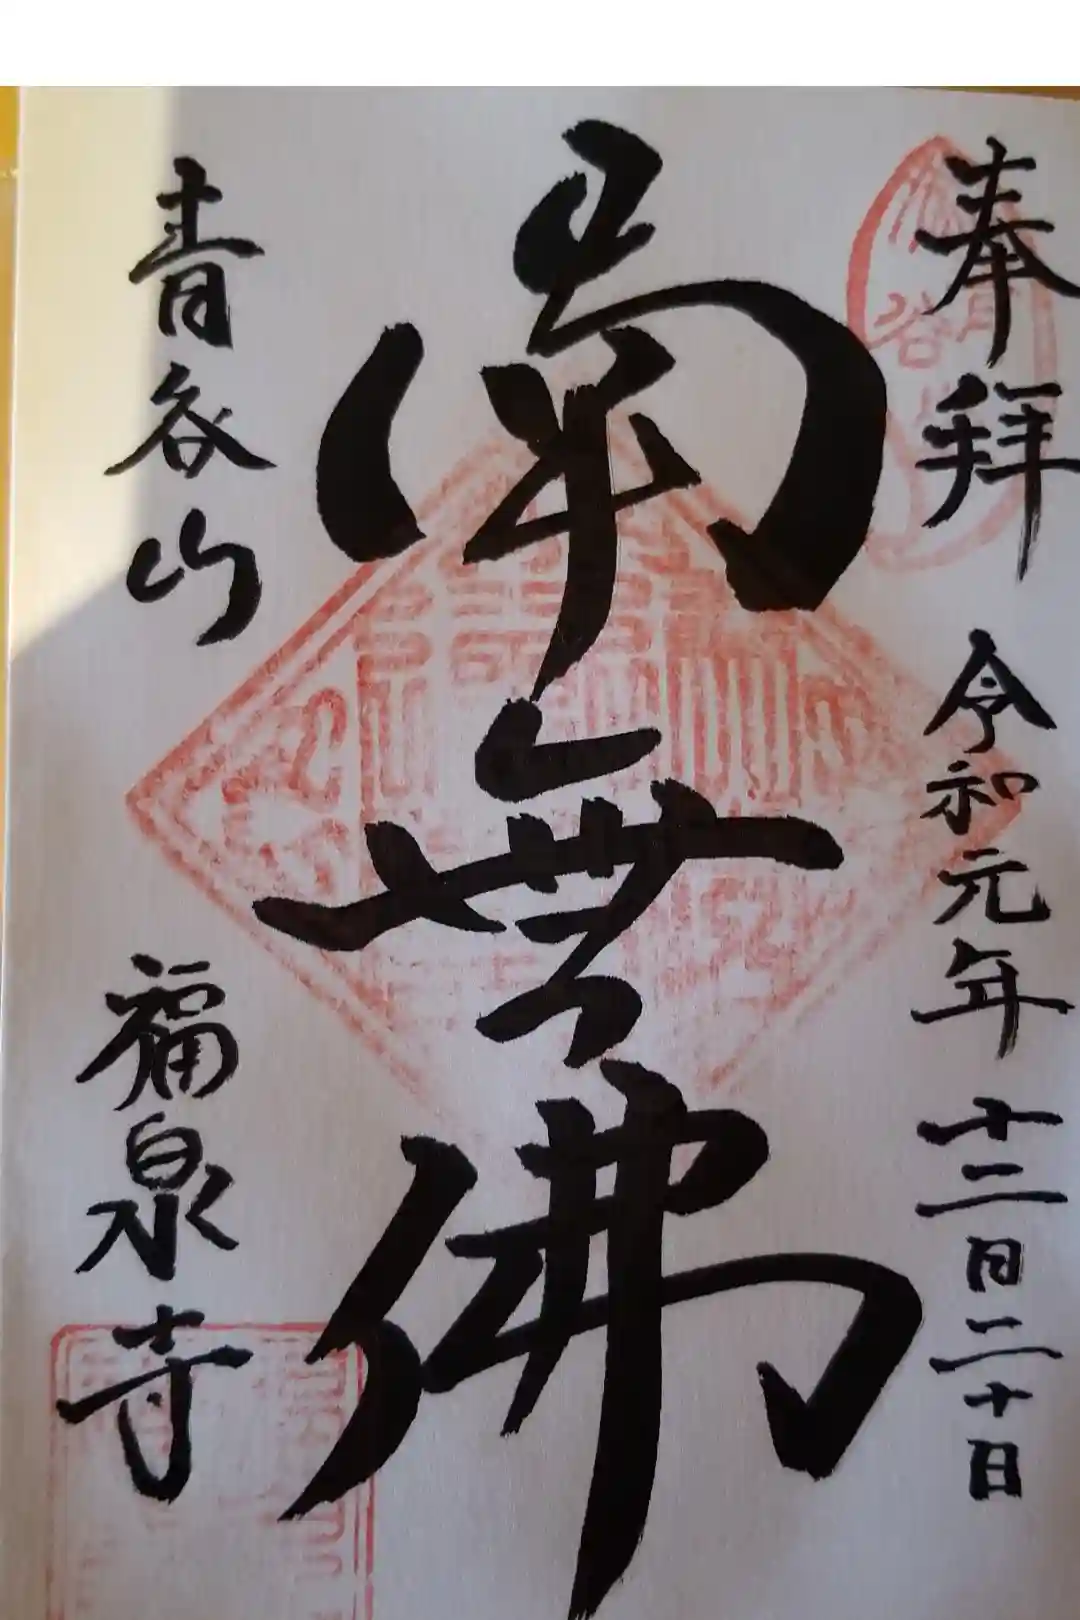 奉拜 令和元年 十二月二十日
南無佛
青谷山 福泉寺